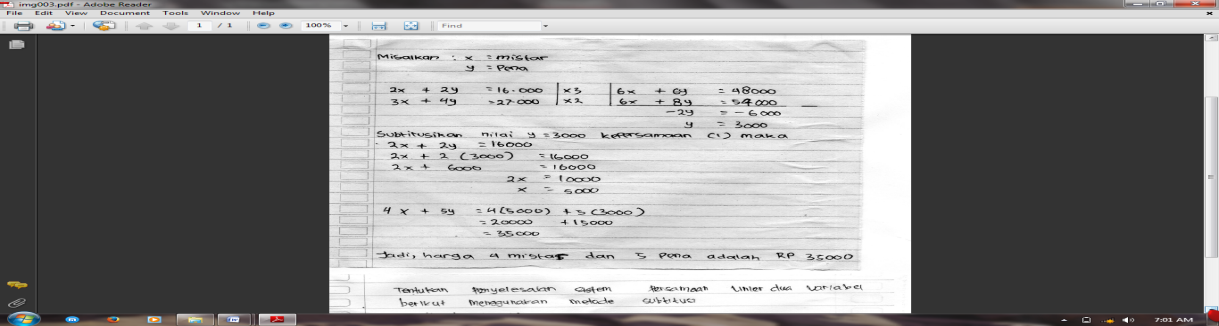 img003.pdf - Adobe Reader
File Edit View Document Tools Window Help
1 / 1 100% Find
Misalkan : x = mistar
y = Pena
2x + 2y = 16.000 | x3 | 6x + 6y = 48000
3x + 4y = 27.000 | x2 | 6x + 8y = 54000
-2y = -6000
y = 3000
Subtitusikan nilai y = 3000 kepersamaan (1) maka
2x + 2y = 16000
2x + 2 (3000) = 16000
2x + 6000 = 16000
2x = 10000
x = 5000
4x + 5y = 4(5000) + 5(3000)
= 20000 + 15000
= 35000
Jadi, harga 4 mistar dan 5 Pena adalah RP 35000
Tentukan Penyelesaian sistem Persamaan Linier dua Variabel
berikut menggunakan metode subtitusi
7:01 AM